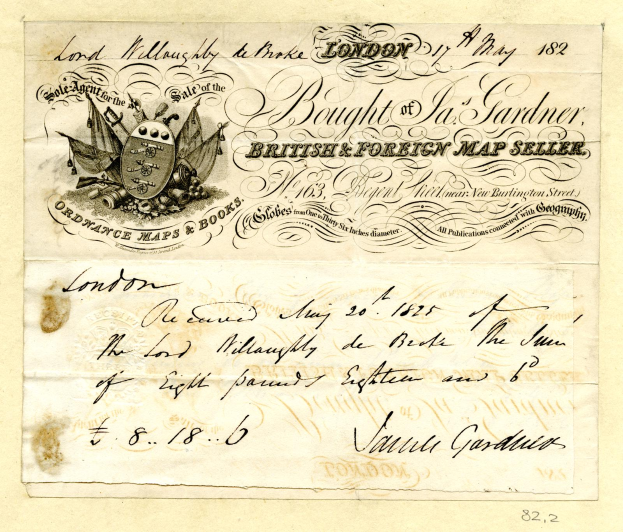 Lord Willoughby de Broke LONDON 17th May 182
Sole Agent for the Sale of the
ORDNANCE MAPS & BOOKS.
Bought of Jas. Gardner,
BRITISH & FOREIGN MAP SELLER,
No. 163, Regent Street, (near New Burlington Street.)
Globes from One to Thirty Six Inches diameter. All Publications connected with Geography.
London
Received May 20th. 1825 of
the Lord Willoughby de Broke the Sum
of Eight pounds Eighteen and 6d
£ 8 .. 18 .. 6 James Gardner
82.2